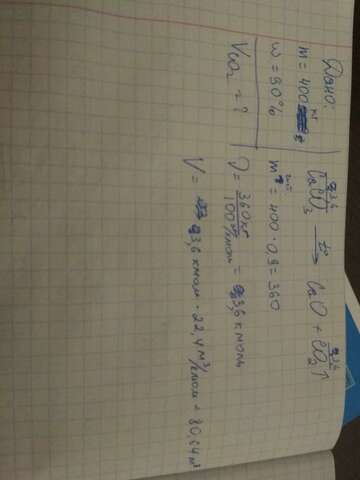 Дано:
m = 400 кг
w = 90%
Vco₂ = ?
3,6 3,6
CaCO₃ →t° CaO + CO₂↑
m чист = 400 · 0,9 = 360
ν = 360кг / 100 кг/кмоль = 3,6 кмоль
V = 3,6 кмоль · 22,4 м³/кмоль = 80,64 м³